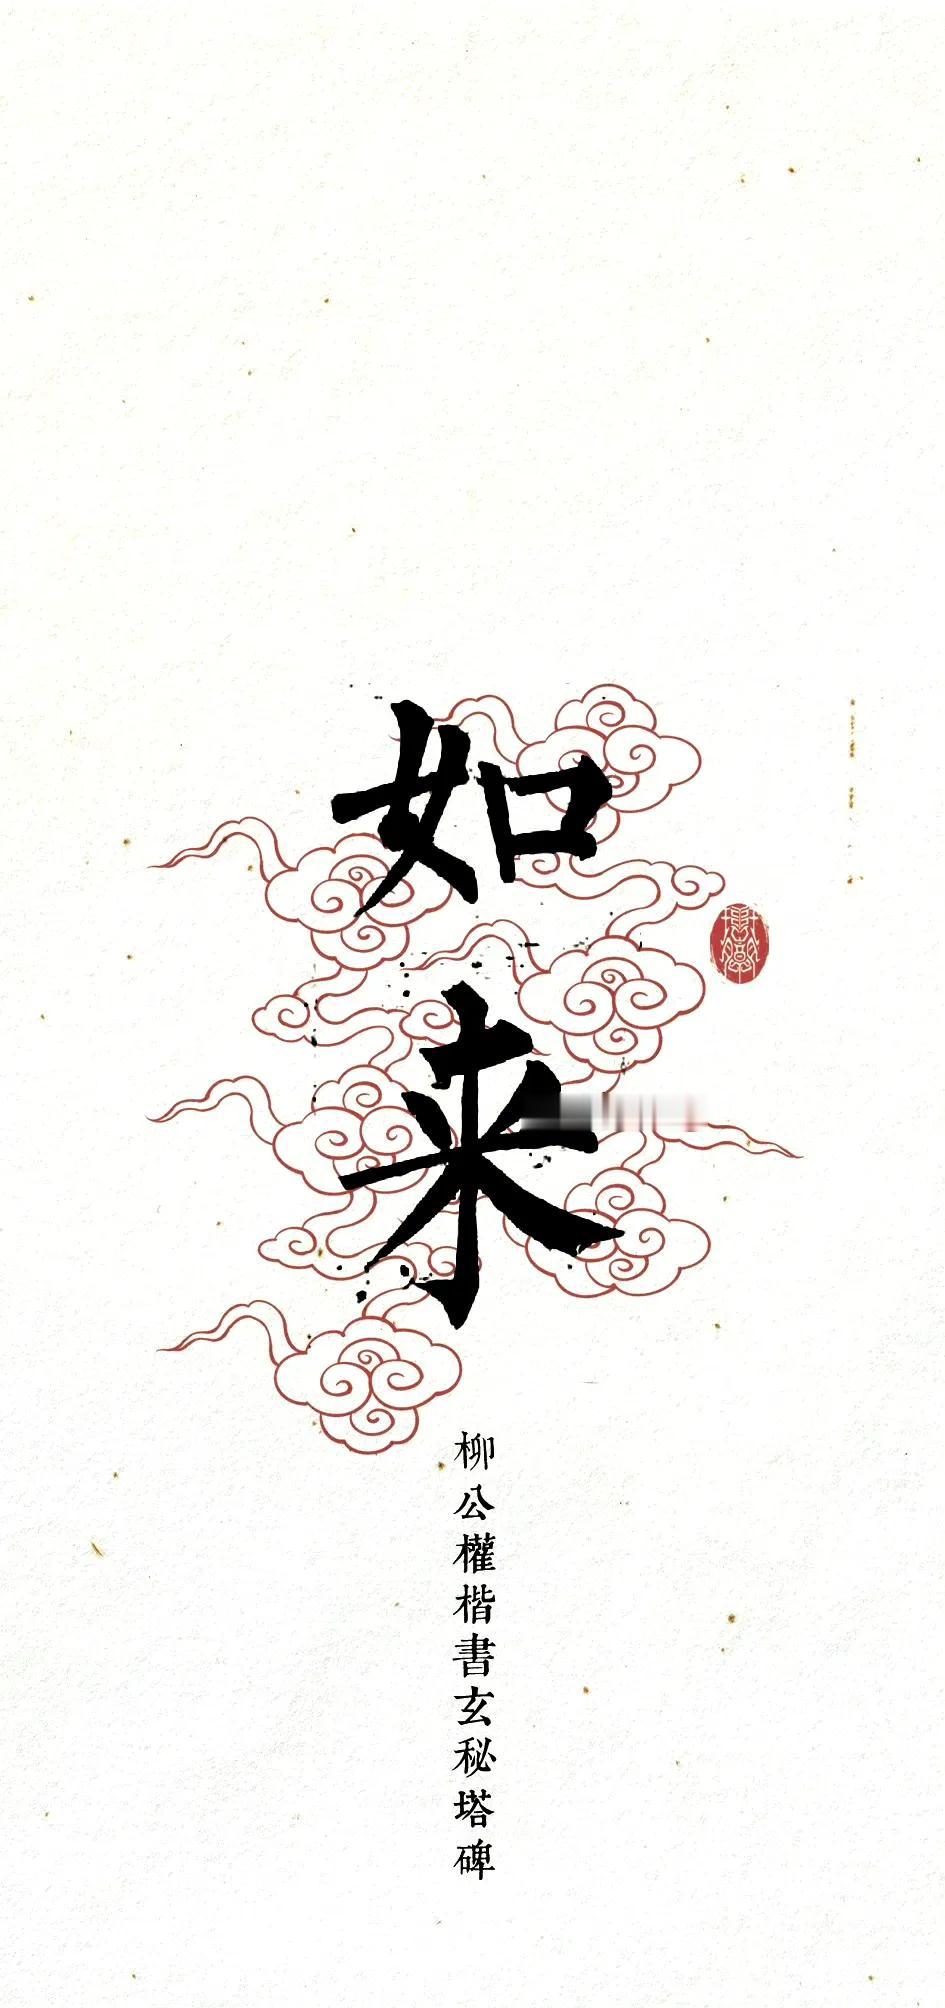 如来
柳公權楷書玄秘塔碑